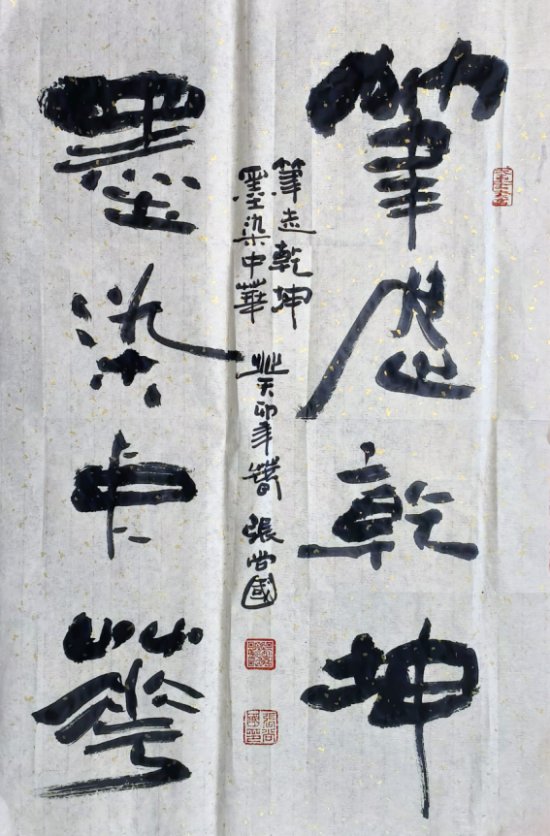 筆走乾坤
墨染中華
筆走乾坤
墨染中華
癸卯年 張尚國